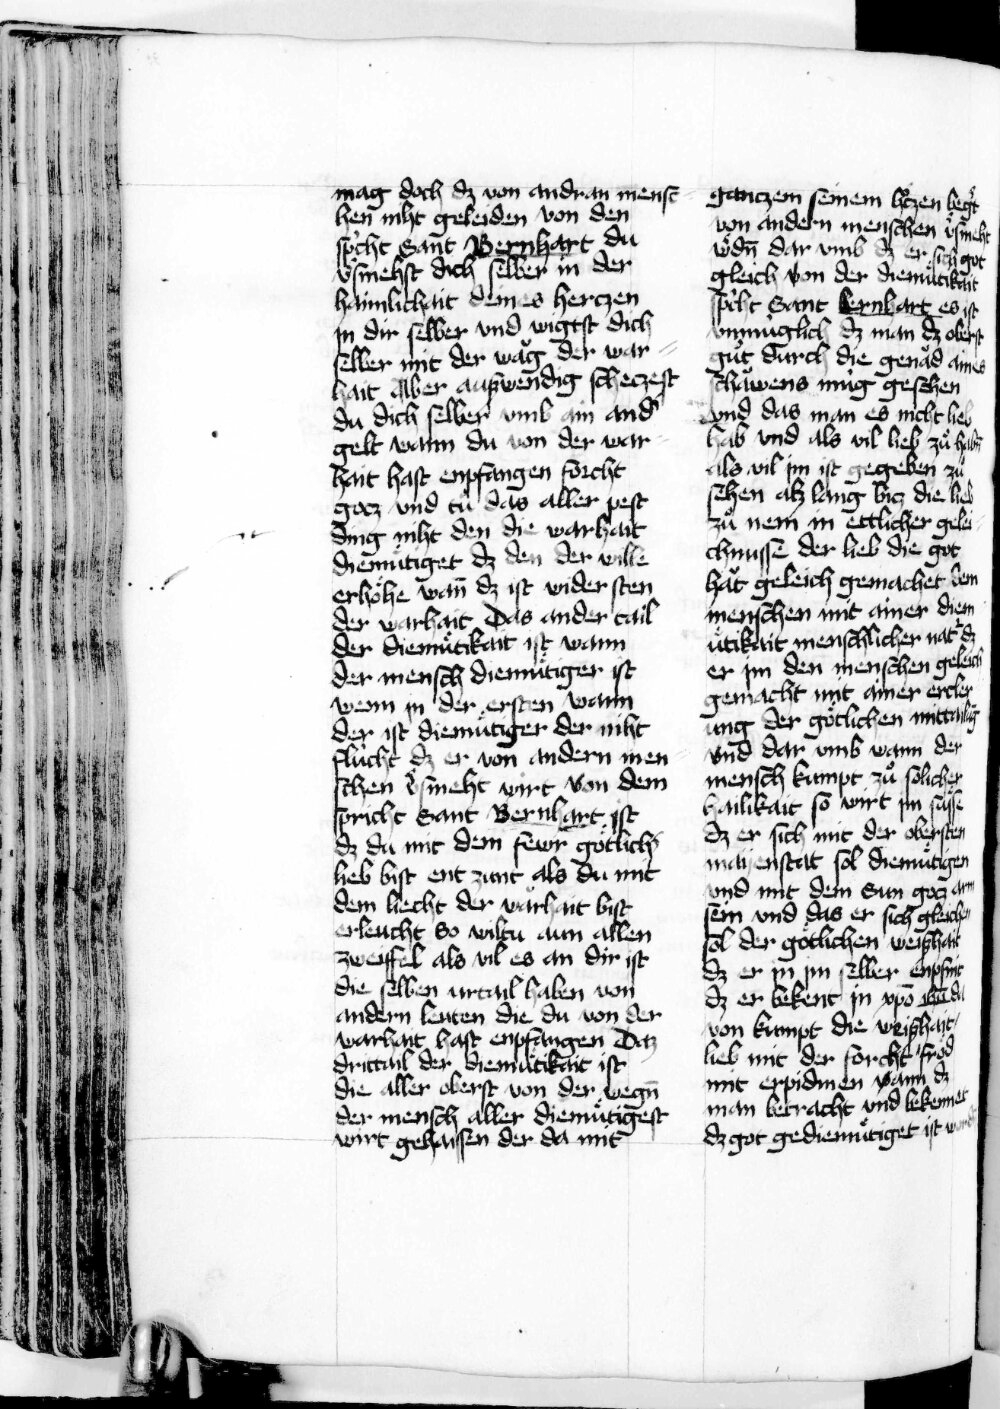 mag doch dz von andran mensc
hen niht geleiden von den
spͥcht Sant Bernhart du
v̓smehst dich selber in der
haimlichait deines herczen
in dir selber vnd wigtst dich
selber mit der wag der war-
hait Aber außwendig scheczest
du dich selber vmb ain and̓
gelt wann du von der war-
hait hast enpfangen forcht
gocz vnd tu das aller pest
ding niht den die warhait
diemuͤtiget dz den der wille
erhoͤhe wan̄ dz ist widersten
der warhait Das ander tail
der diemuͤtikait ist wann
der mensch diemuͤtiger ist
wenn in der ersten wann
der ist diemuͤtiger der niht
flucht dz er von andern men
schen v̓smeht wirt Von dem
spricht Sant Bernhart ist
dz du mit dem fewr goͤtlich̓
lieb bist entzunt als du mit
dem liecht der warhait bist
erleucht So wiltu aun allen
zweiffel als vil es an dir ist
die selben urtail haben von
andern leuten die du von der
warhait hast enpfangen Daz
drittail der diemuͤtikait ist
die aller oberst von der wegn̄
der mensch aller diemuͤtigest
wirt gehaissen der da mit
ganczem seinem h̓czen beg̓t
von andern menschen v̓smeht
w̓dn̄ dar vmb dz er sich got
gleich Von der diemuͤtikait
spͥcht Sant Bernhart es ist
vnmuglich dz man dz oberst
guͦt durch die genad aines
schawens mug gesehen
vnd das man es nicht lieb
hab vnd als vil lieb zuͦ habn̄
als vil im ist gegeben zuͦ
sehen als lang bicz die lieb
zuͦ nem in ettlicher gelei-
chnusse der lieb die got
hat geleich gemachet dem
menschen mit ainer diem-
uͤtikait menschlicher nat̓ dz
er im den menschen geleich
gemacht mit ainer ercler
ung der goͤtlichen mittailūg
vnd dar vmb wann der
mensch kumpt zuͦ solicher
hailikait so wirt im suͤsse
dz er sich mit der obersten
maijenstat sol diemuͤtigen
vnd mit dem Sun gocz arm
sein vnd das er sich gleichen
sol der goͤtlichen weißhait
dz er in im selber enpfint
dz er bekent in xpō ihū da
von kumpt die weißhait
lieb mit der forcht froͤd
mit erpidmen wann dz
man betracht vnd bekennet
dz got gediemuͤtiget ist word